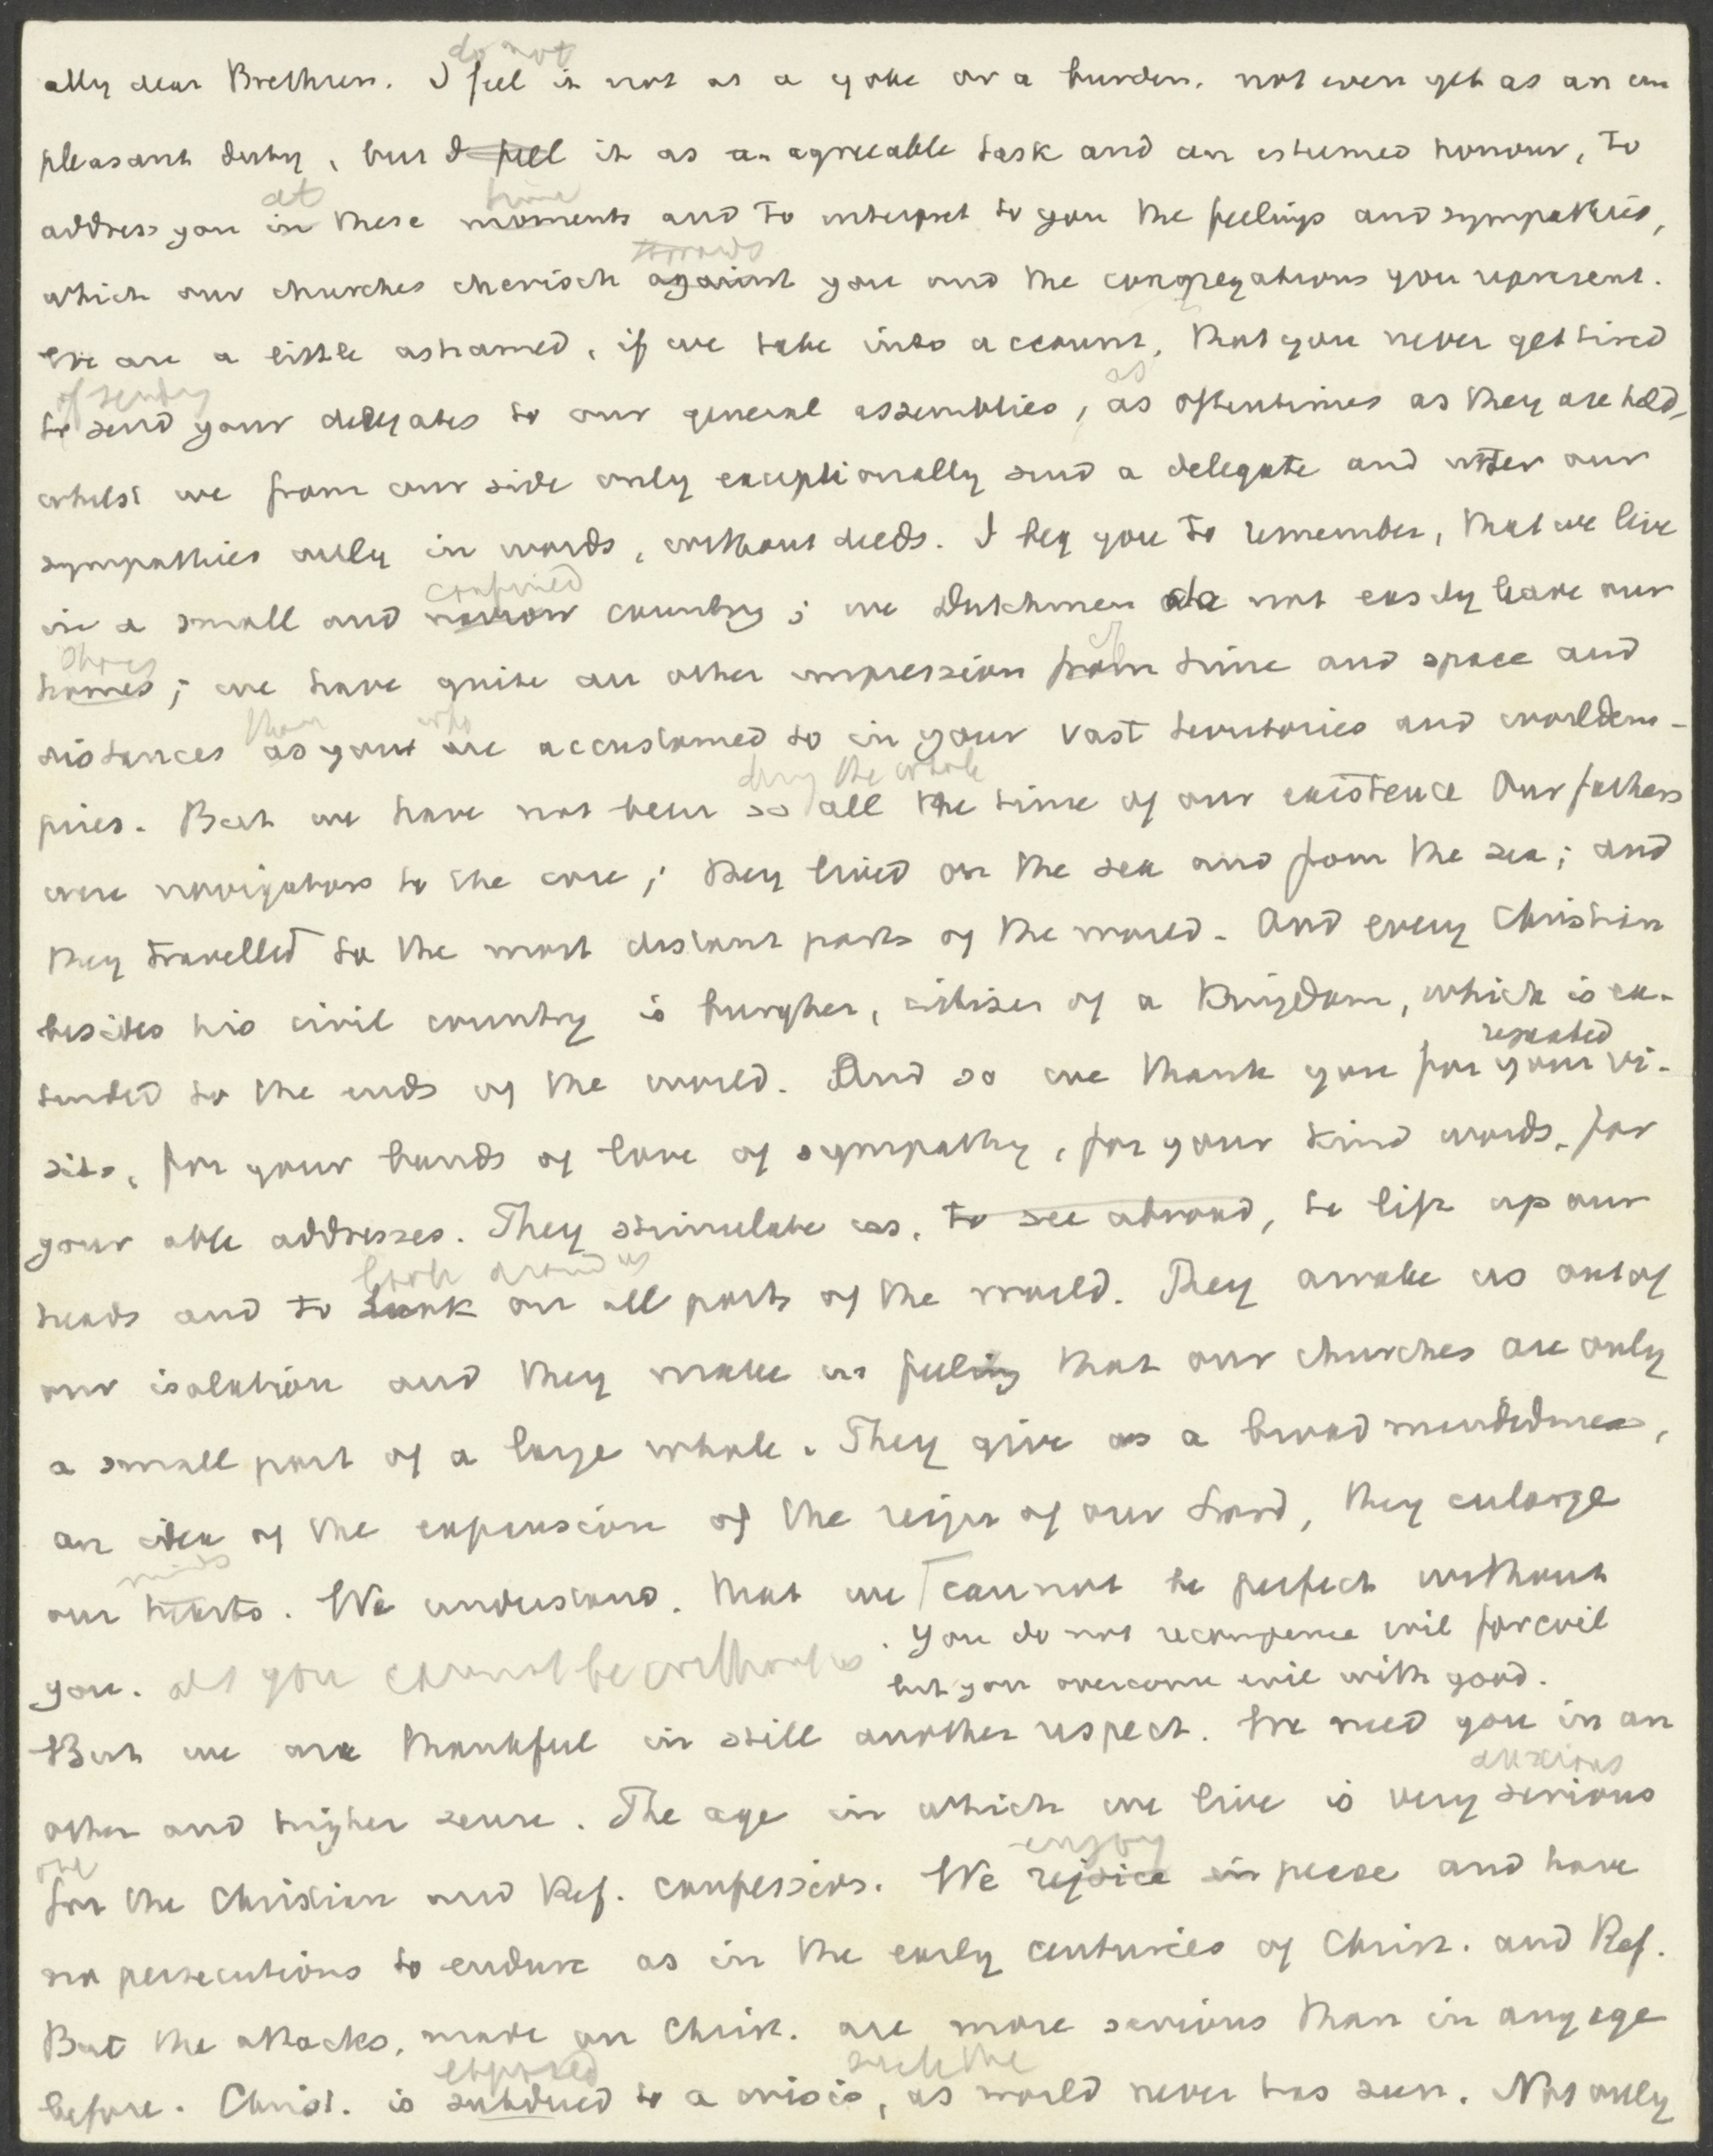 do not
My dear Brethren. I feel it not as a yoke or a burden, not even yet as an un
pleasant duty, but I feel it as an agreeable task and an esteemed honour, to
at time
address you in these moments and to interpret to you the feelings and sympathies,
towards
which our churches cherisch against you and the congregations you represent.
We are a little ashamed, if we take into account, that you never get tired
of sending as
to send your delegates to our general assemblies, as oftentimes as they are held,
whilst we from our side only exceptionally send a delegate and utter our
sympathies only in words, without deeds. I beg you to remember, that we live
confined
in a small and narrow country; we Dutchmen do not easily leave our
shores of
homes; we have quite an other impression from time and space and
than who
distances as you are accustomed to in your vast territories and worldem-
during the whole
pires. But we have not been so all the time of our existence Our fathers
were navigators to the core; they lived on the sea and from the sea; and
they travelled to the most distant parts of the world. And every Christian
besides his civil country is burgher, citisen of a Kingdom, which is ex-
repeated
tended to the ends of the world. And so we thank you for your vi-
sits, for your bonds of love of sympathy, for your kind words, for
your able addresses. They stimulate us, to see abroad, to lift up our
look around us
heads and to look on all parts of the world. They awake us out of
our isolation and they make us feeling that our churches are only
a small part of a large whole. They give us a broadmindedness,
an idea of the expansion of the reign of our Lord, they enlarge
minds
our hearts. We understand, that we cannot be perfect without
you. as you cannot be without us. You do not recompense evil for evil
but you overcome evil with good.
But we are thankful in still another respect. We need you in an
anxious
other and higher sense. The age in which we live is very serious
one enjoy
for the Christian and Ref. confession. We rejoice in peace and have
no persecutions to endure as in the early centuries of Christ. and Ref.
But the attacks, made on Christ. are more serious than in any age
exposed such the
before. Christ. is subdued to a crisis, as world never has seen. Not only